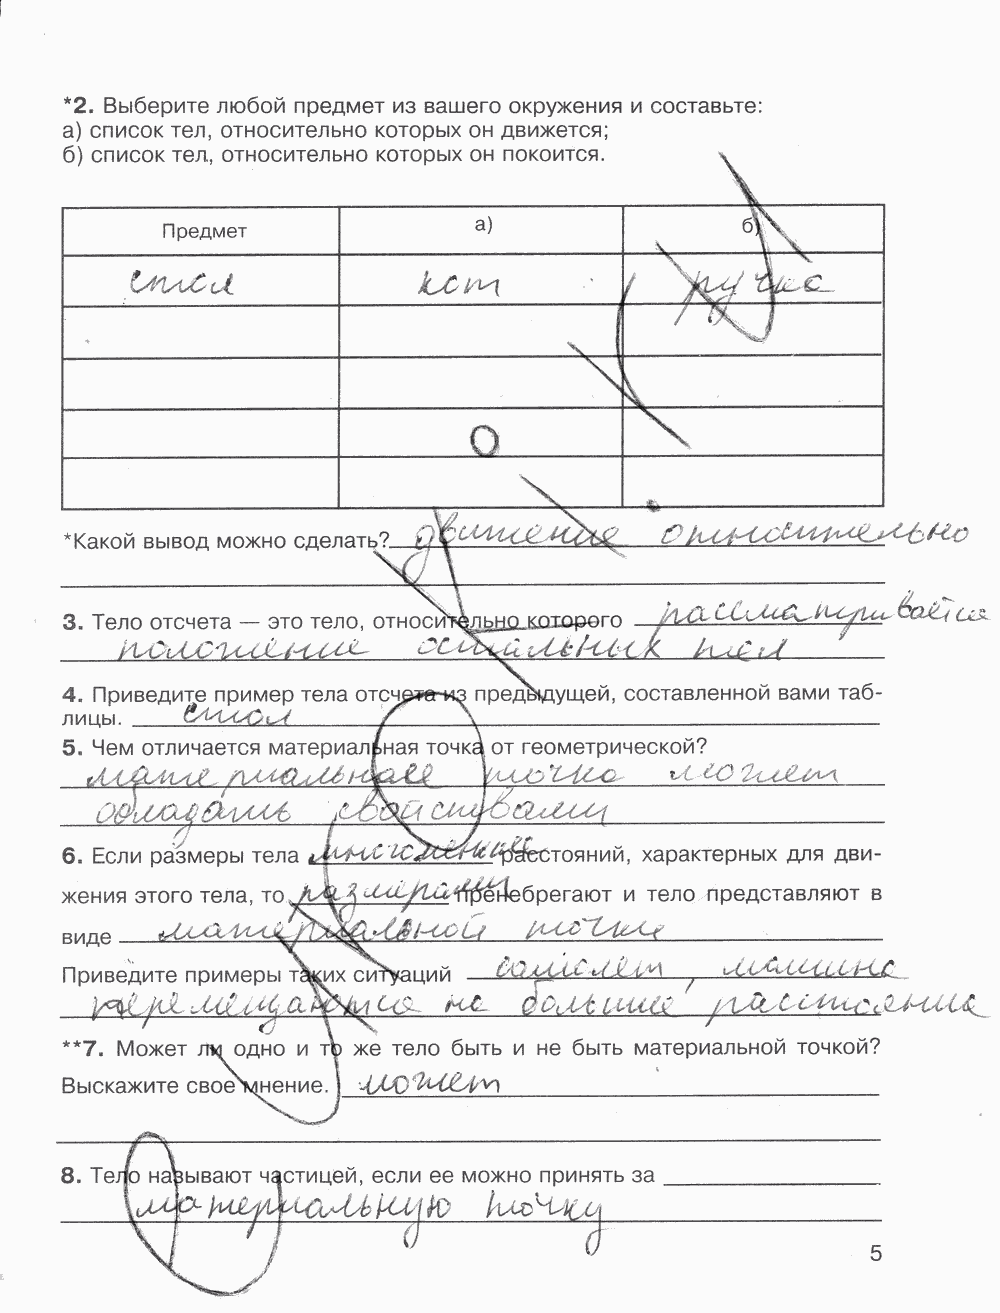 *2. Выберите любой предмет из вашего окружения и составьте:
а) список тел, относительно которых он движется;
б) список тел, относительно которых он покоится.
Предмет а) б)
стол кот ручка
*Какой вывод можно сделать? движение относительно
3. Тело отсчета — это тело, относительно которого рассматривается
положение остальных тел
4. Приведите пример тела отсчета из предыдущей, составленной вами таб-
лицы. стол
5. Чем отличается материальная точка от геометрической?
материальная точка может
обладать свойствами
6. Если размеры тела много меньше расстояний, характерных для дви-
жения этого тела, то размерами пренебрегают и тело представляют в
виде материальной точки
Приведите примеры таких ситуаций самолет, машина
перемещаются на большие расстояния
**7. Может ли одно и то же тело быть и не быть материальной точкой?
Выскажите свое мнение. может
8. Тело называют частицей, если ее можно принять за
материальную точку
5